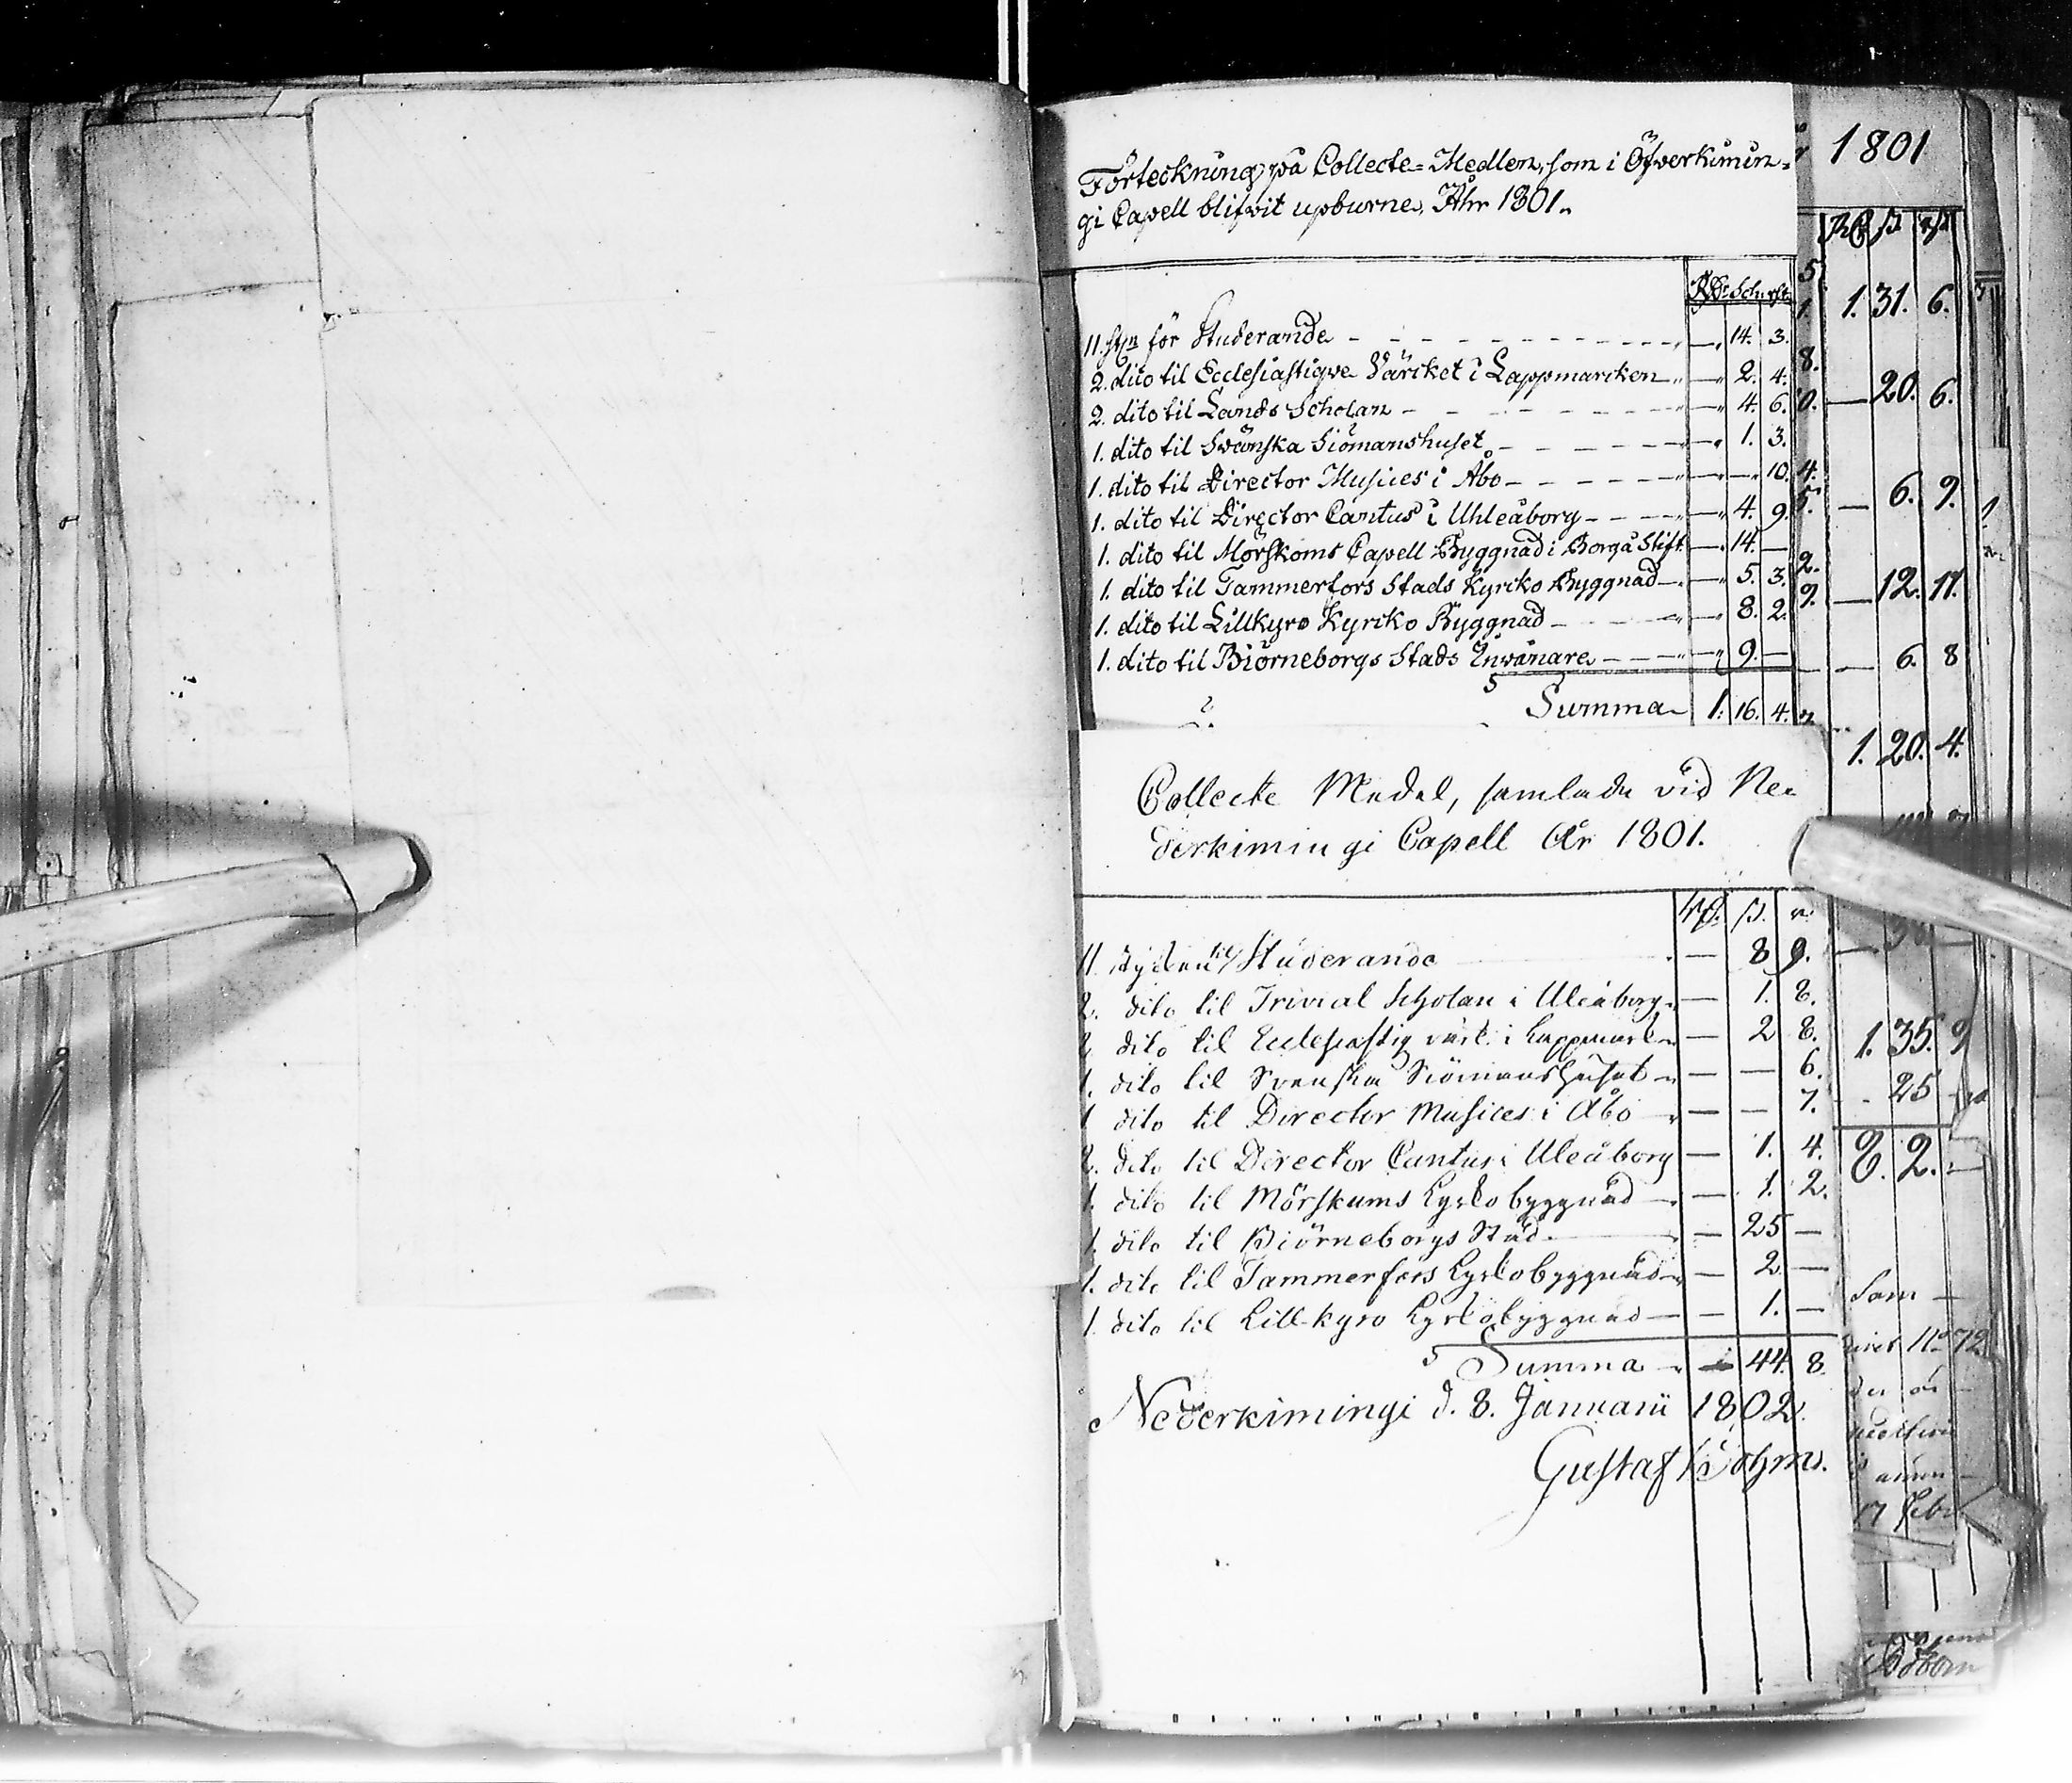 Förteckning på Collecte-Medlen, som i Öfverkimin-
gi Capell blifvit upburne, Åhr 1801.
RDr Sch. rst.
11. st:n för Studerande — 14. 3.
2. dito til Ecclesiastiqve Värcket i Lappmarcken — 2. 4.
2. dito til Lands Scholan — 4. 6.
1. dito til Swänska Siömanshuset — 1. 3.
1. dito til Director Musices i Åbo — — 10.
1. dito til Director Cantus i Uhleåborg — 4. 9.
1. dito til Mörskoms Capell Byggnad i Borgå Stift — 14. —
1. dito til Tammerfors Stads Kyrcko Byggnad — 5. 3.
1. dito til Lillkyro Kyrcko Byggnad — 8. 2.
1. dito til Biörneborgs Stads Inwånare — 9. —
Summa 1. 16. 4.
Collecte Medel, samlade vid Ne-
derkimingi Capell År 1801.
11. stycken til Studerande — 8 9.
2. dito til Trivial Scholan i Uleåborg — 1. 8.
2. dito til Eclesiastig värk. i Lappmark. — 2 8.
1. dito til Svenska Siömanshuset — — 6.
1. dito til Director Musices i Åbo — — 7.
2. dito til Director Cantus i Uleåborg — 1. 4.
1. dito til Mörskums kyrkobyggnad — 1. 2.
1. dito til Biörneborgs Stad — 25 —
1. dito til Tammerfors kyrkobyggnad — 2 —
1. dito til Lill-kyro kyrkobyggnad — 1. —
Summa — 44. 8.
Nederkimingi d. 8. Januarii 1802.
Gustaf
1801
1. 31. 6.
— 20. 6.
— 6. 9.
— 12. 11.
— 6. 8
1. 20. 4.
1. 35. 9
25
8. 2. —
Som
No 72